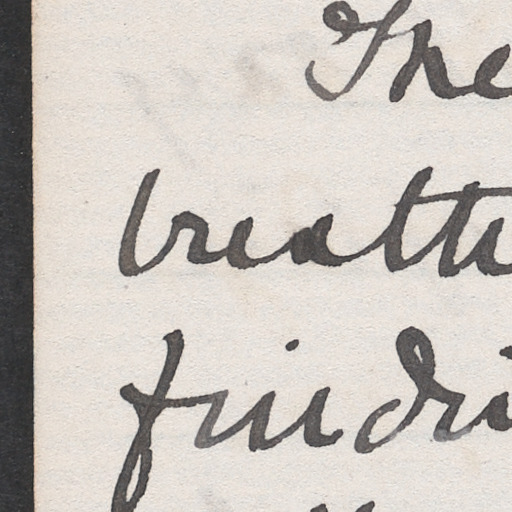 The
breath
findi